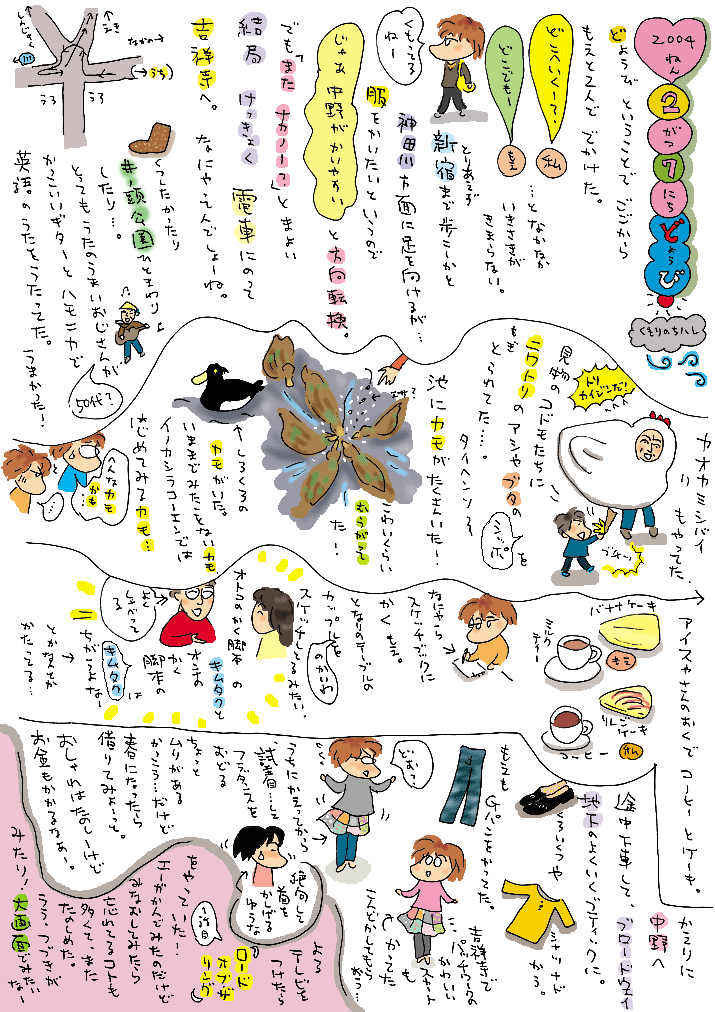 2004
ねん
2
がつ
7
にち
どようび
くもりのちハレ
どようび ということで ごごから
もえと2人で でかけた。
どこへいくー?
私
どこでもー
もえ
…となかなか
いきさきが
きまらない。
とりあえず
新宿まで歩こーかと
神田川方面に足を向けるが…
くもってるねー
服をかいたいというので
じゃあ 中野がかいやすい
と方向転換。
でも「また ナカノー?」とまよい
結局 けっきょく 電車にのって
吉祥寺へ。
なにやってんでしょーね。
なかの→
うち
川
うろ
うろ
くつしたかったり
井ノ頭公園ひとまわり
したり…。
とってもうたのうまいおじさんが
かっこいいギターと ハモニカで
英語のうたをうたってた。うまかった!
50代?
カオカミシバイ
もやってた。
トリカイジンだ!
見物のコドモたちに
ニワトリのアシや ブタの
シッポ
を
もぎとられてた…。
タイヘンソ〜
ブチッ
池にカモがたくさんいた!
こわいくらい
むらがって
た!
↑しろくろの
カモがいた。
いままでみたことないカモ
イーカシラコーエンでは
はじめてみるカモ…
へんなカモ
かも…
アイスやさんのおくで コーヒーとケーキ。
バナナケーキ
ミルクティー
もえ
りんごケーキ
コーヒー
なにやら
スケッチブックに
かく もえ。
となりのテーブルの
カップルを
スケッチしてるみたい。
のかいね
オトコのかく脚本 の
キムタクと
オンナの
かく
脚本の
キムタク
は
ちがうよなー
とかなんとか
かたってる…
よくしゃべってる
かえりに
中野へ
途中下車して、ブロードウェイ
地下のよくいくブティックに。
くろいくつや
シャツナド
かう。
もえも
Gパンをかってた。
吉祥寺で
パッチワークの
かわいい
スカート
も
かってた
こんどかしてもらおう…
どお?
うちにかえってから
試着…して
フラダンスを
おどる
ちょっと
ムリがある
かっこう…だけど
春になったら
借りてみよーっと。
おしゃれはたのしいけど
お金もかかるなあー。
絶句して
首を
かしげる
ゆうな
よる
テレビを
つけたら
『ロード
オブザ
リング』
1作目
をやっていた!
エーがかんでみたのだけど
みなおしてみたら
忘れてるコトも
多くて、また
たのしめた。
うう、つづきが
みたい!
大画面でみたいなー